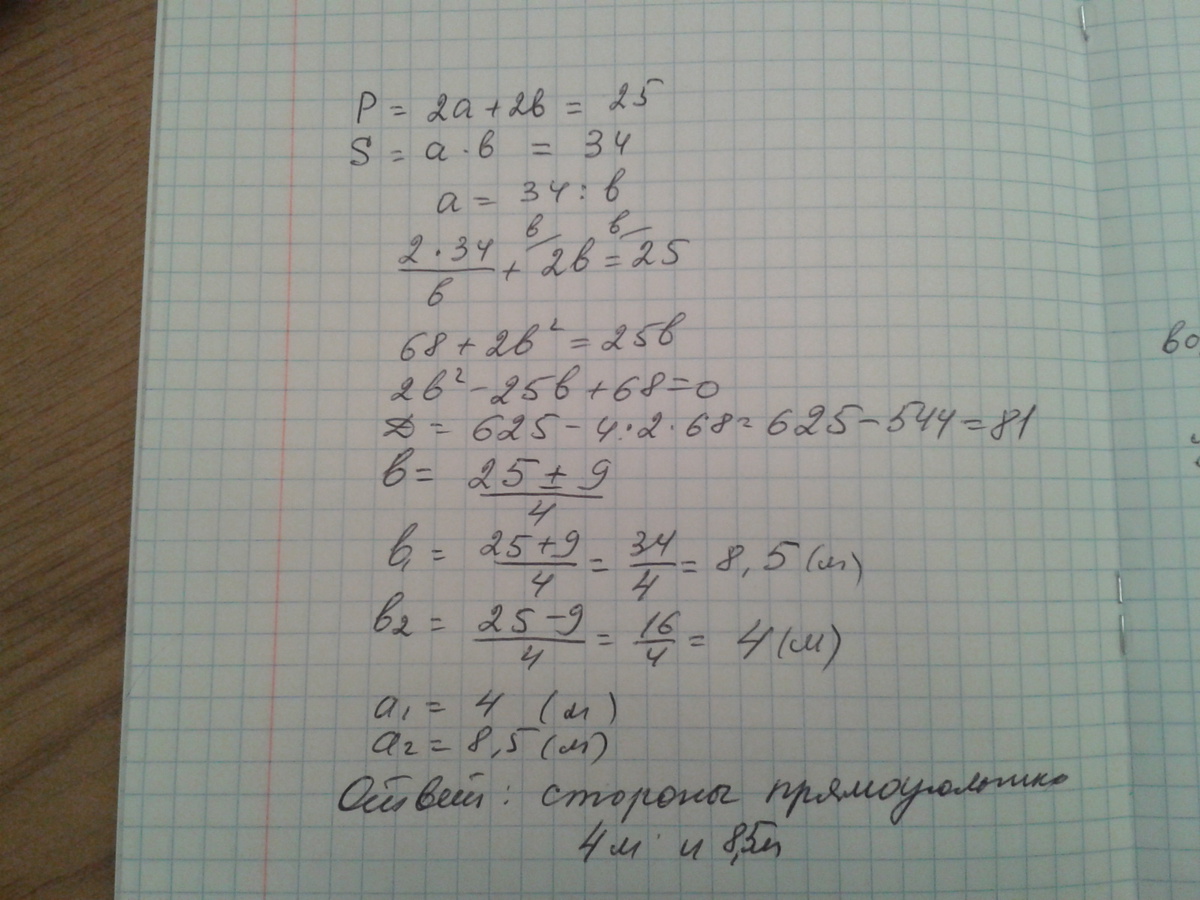 P = 2a + 2b = 25
S = a · b = 34
a = 34 : b
2 · 34 / b + 2b = 25
b b
68 + 2b² = 25b
2b² - 25b + 68 = 0
D = 625 - 4 · 2 · 68 = 625 - 544 = 81
b = 25 ± 9 / 4
b₁ = 25 + 9 / 4 = 34 / 4 = 8,5 (м)
b₂ = 25 - 9 / 4 = 16 / 4 = 4 (м)
a₁ = 4 (м)
a₂ = 8,5 (м)
Ответ: стороны прямоугольника
4м и 8,5м